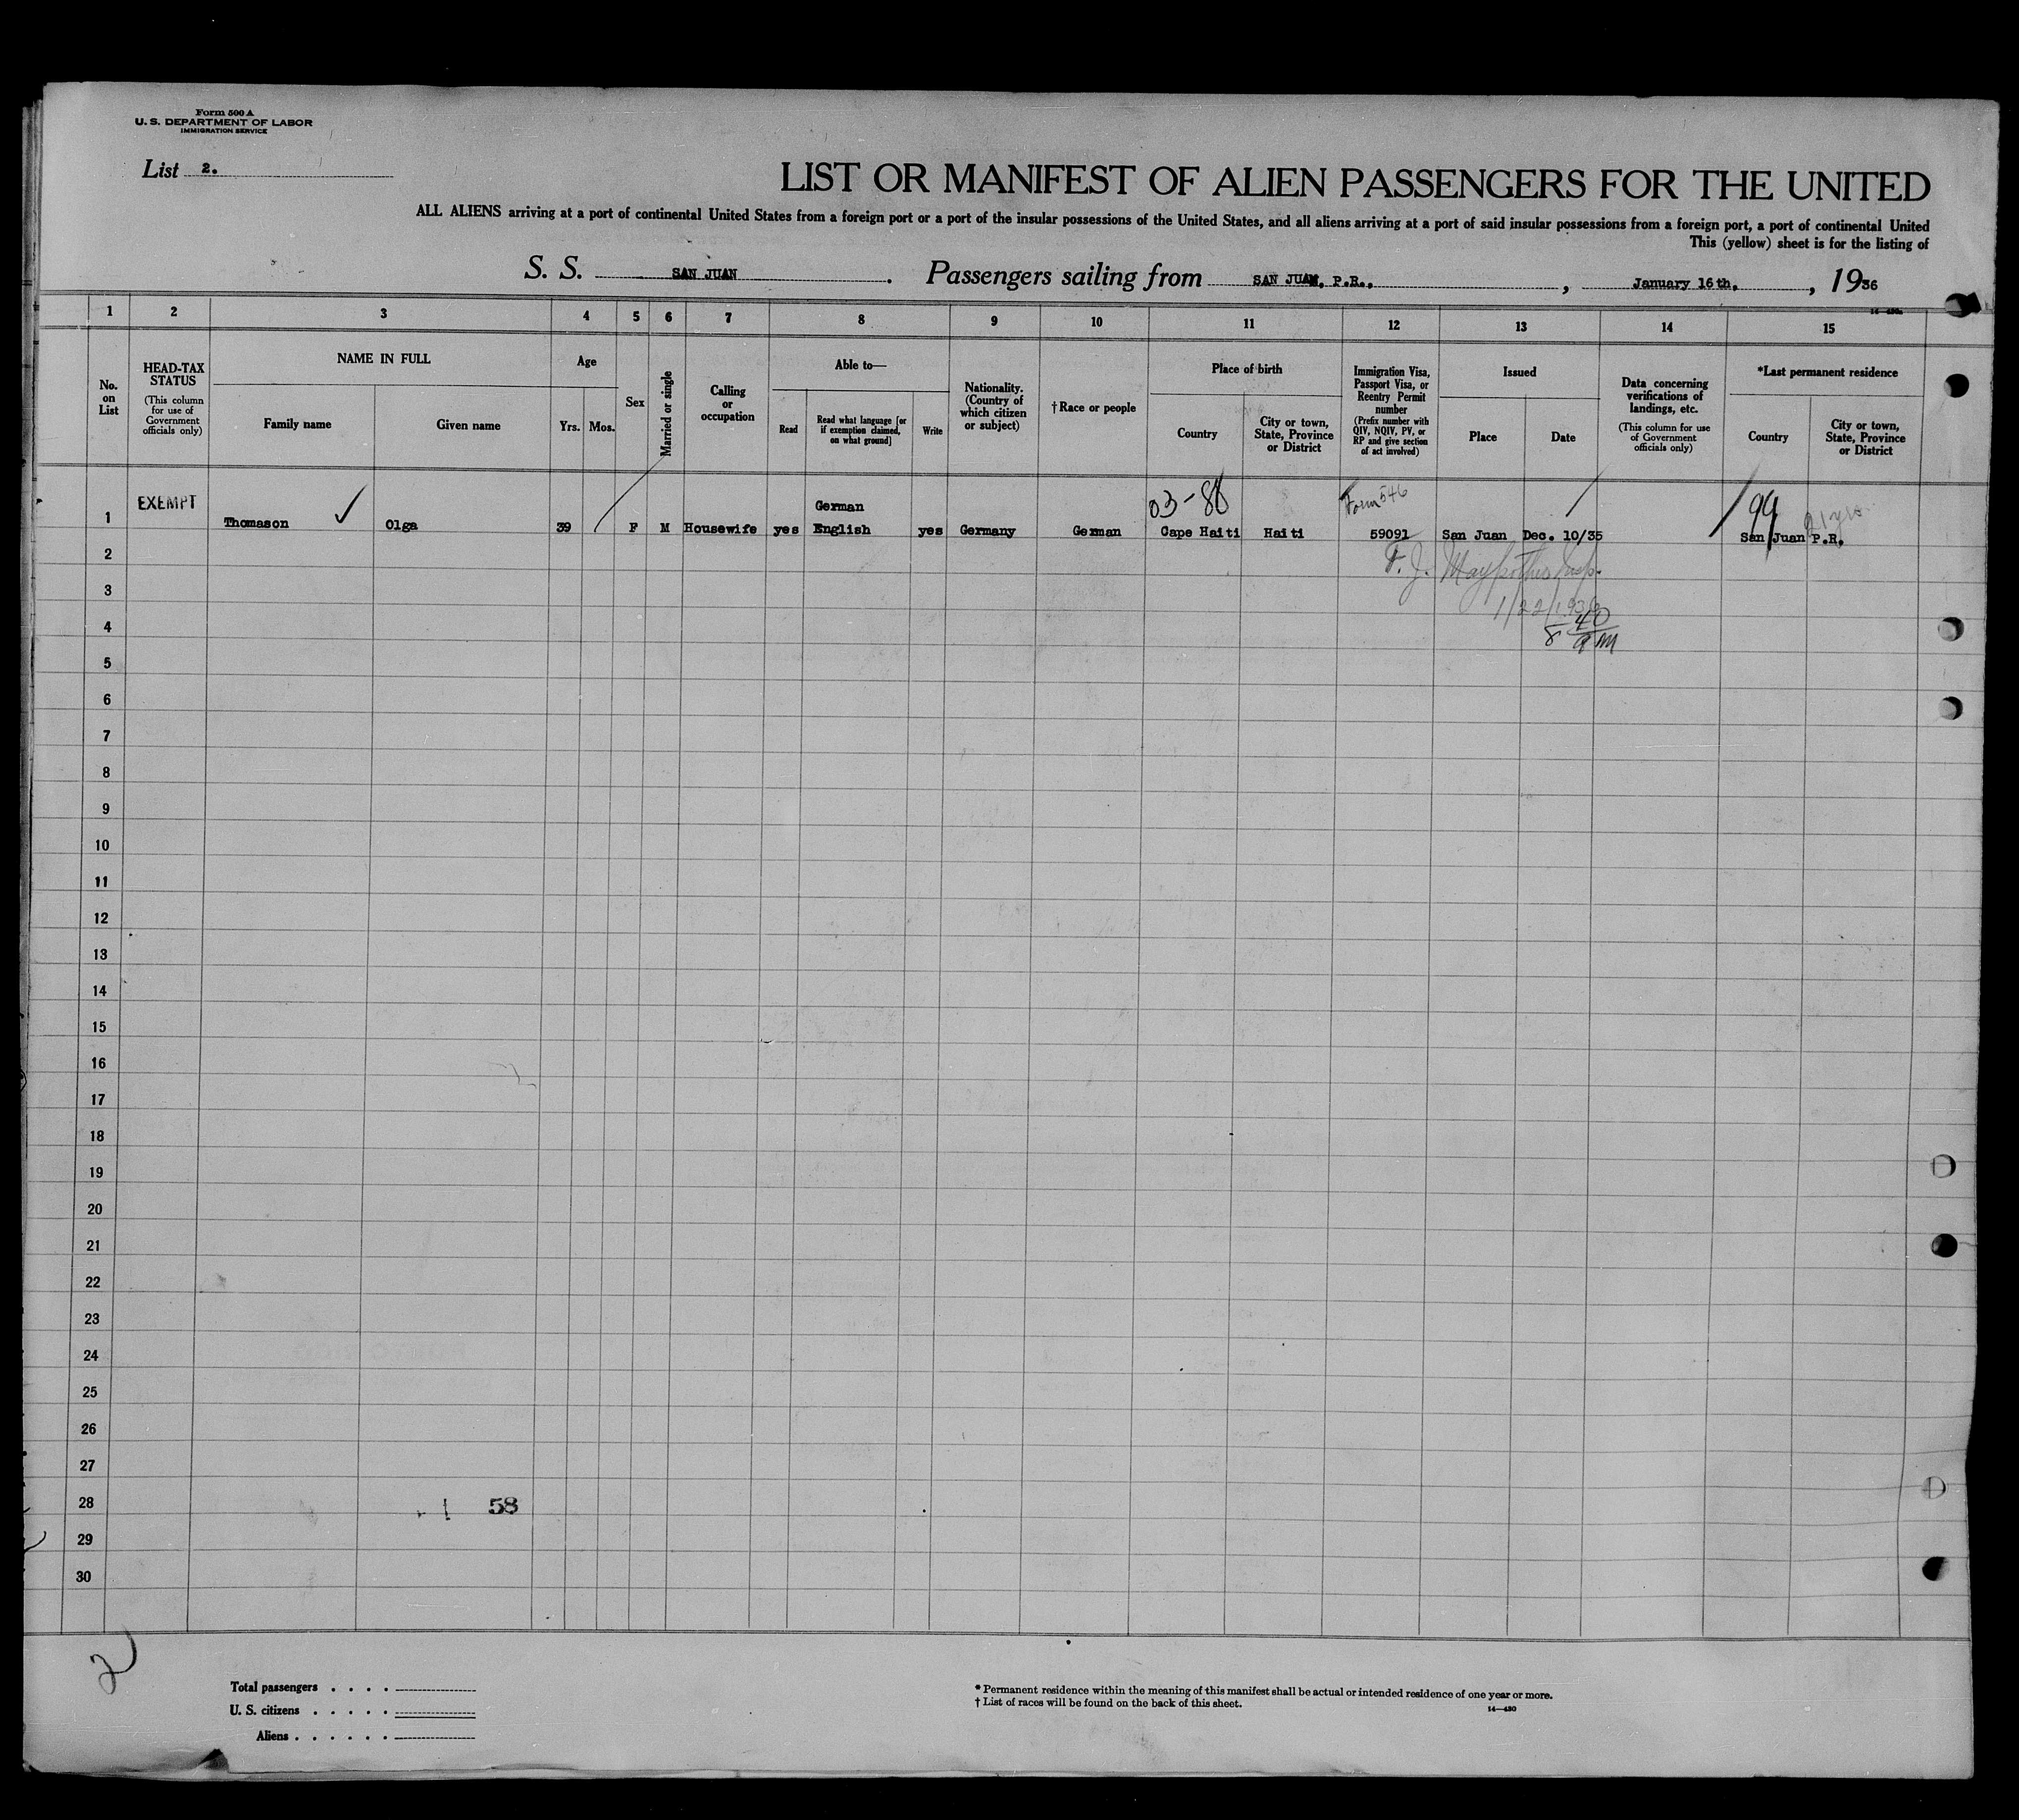 Form 500 A
U. S. DEPARTMENT OF LABOR
IMMIGRATION SERVICE
List 2.
LIST OR MANIFEST OF ALIEN PASSENGERS FOR THE UNITED
ALL ALIENS arriving at a port of continental United States from a foreign port or a port of the insular possessions of the United States, and all aliens arriving at a port of said insular possessions from a foreign port, a port of continental United
This (yellow) sheet is for the listing of
S. S. SAN JUAN. Passengers sailing from SAN JUAN, P.R., , January 16th, , 1936
1 2 3 4 5 6 7 8 9 10 11 12 13 14 15
No. on List
HEAD-TAX STATUS
(This column for use of Government officials only)
NAME IN FULL
Family name
Given name
Age
Yrs.
Mos.
Sex
Married or single
Calling or occupation
Able to—
Read
Read what language [or if exemption claimed, on what ground]
Write
Nationality. (Country of which citizen or subject)
†Race or people
Place of birth
Country
City or town, State, Province or District
Immigration Visa, Passport Visa, or Reentry Permit number
(Prefix number with QIV, NQIV, PV, or RP and give section of act involved)
Issued
Place
Date
Data concerning verifications of landings, etc.
(This column for use of Government officials only)
*Last permanent residence
Country
City or town, State, Province or District
EXEMPT
03-86
Form 546
99
21 yrs.
German
1 Thomason Olga 39 F M Housewife yes English yes Germany German Cape Haiti Haiti 59091 San Juan Dec. 10/35 San Juan P.R.
2
F. J.
3
1/22/1936
4
8 40
am
5
6
7
8
9
10
11
12
13
14
15
16
17
18
19
20
21
22
23
24
25
26
27
28
58
29
30
2
Total passengers . . . .
U. S. citizens . . . . .
Aliens . . . . . .
* Permanent residence within the meaning of this manifest shall be actual or intended residence of one year or more.
† List of races will be found on the back of this sheet.
14—430